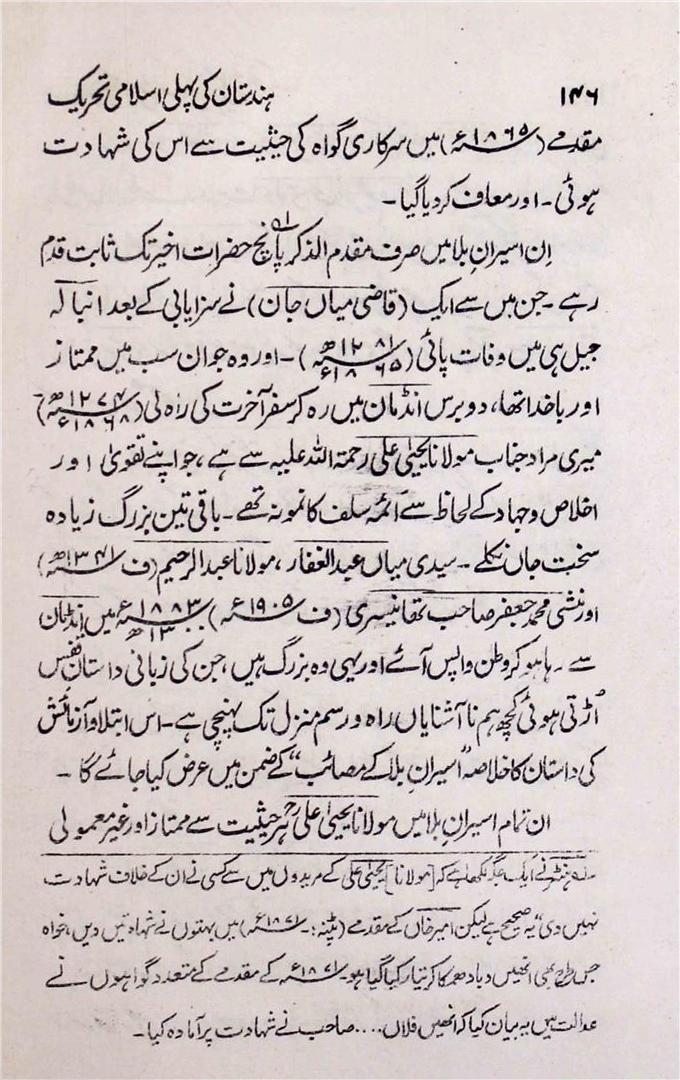 ۱۴۶ ہندستان کی پہلی اسلامی تحریک
مقدمے (۱۸۶۵ء) میں سرکاری گواہ کی حیثیت سے اس کی شہادت
ہوئی۔ اور معاف کر دیا گیا۔
اِن اسیرانِ بلا میں صرف مقدم الذکر پانچ حضرات اخیر تک ثابت قدم
رہے۔ جن میں سے ایک (قاضی میاں جان) نے سزایابی کے بعد انبالہ
جیل ہی میں وفات پائی (۱۲۸۱ھ ۱۸۶۵ء)۔ اور وہ جو ان سب میں ممتاز
اور باخدا تھا، دو برس انڈمان میں رہ کر سفر آخرت کی راہ لی (۱۲۸۴ھ ۱۸۶۸ء)
میری مراد جناب مولانا یحییٰ علی رحمۃ اللہ علیہ سے ہے، جو اپنے تقویٰ اور
اخلاص و جہاد کے لحاظ سے ائمہ سلف کا نمونہ تھے۔ باقی تین بزرگ زیادہ
سخت جان نکلے۔ سیدی میاں عبدالغفار، مولانا عبدالرحیم (ف ۱۳۴۱ھ)
اور منشی محمد جعفر صاحب تھانیسری (ف ۱۹۰۵ء) ۱۸۸۳ء میں انڈمان
سے رہا ہو کر وطن واپس آئے اور یہی وہ بزرگ ہیں، جن کی زبانی داستانِ قفس
اُڑتی ہوئی کچھ ہم ناآشنایاں راہ و رسم منزل تک پہنچی ہے۔ اس ابتلا و آزمائش
کی داستان کا خلاصہ "اسیرانِ بلا کے مصائب" کے ضمن میں عرض کیا جائے گا۔
ان تمام اسیرانِ بلا میں مولانا یحییٰ علیؒ ہر حیثیت سے ممتاز اور غیر معمولی
ہنٹر نے ایک جگہ لکھا ہے کہ [مولانا] یحییٰ علی کے مریدوں میں سے کسی نے ان کے خلاف شہادت
نہیں دی" یہ صحیح ہے لیکن امیر خاں کے مقدمے (پٹنہ: ۱۸۷۱ء) میں بہتوں نے شہادتیں دیں، خواہ
جس طرح بھی انھیں دبا دھمکا کر تیار کیا گیا ہو۔ ۱۸۷۱ء کے مقدمے کے متعدد گواہوں نے
عدالت میں یہ بیان کیا کہ انھیں فلاں.... صاحب نے شہادت پر آمادہ کیا۔